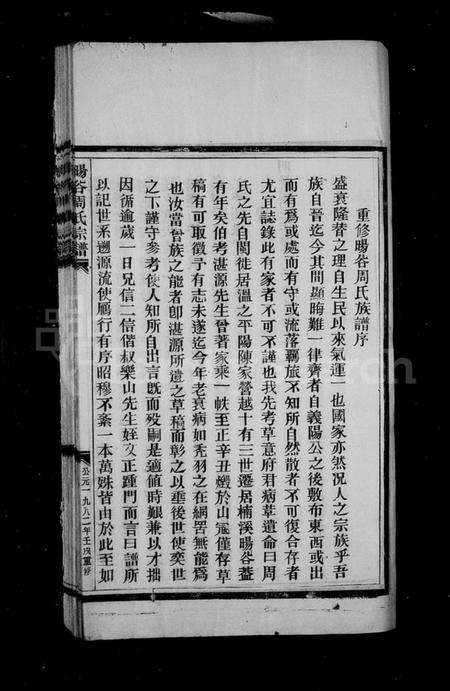 重修暘谷周氏族譜序
盛衰隆替之理自生民以來氣運一也國家亦然况人之宗族乎吾
族自晉迄今其間顯晦難一律齊者自義陽公之後敷布東西或出
而有爲或處而有守或流落羈旅不知所自然散者不可復合存者
尤宜誌錄此有家者不可不謹也我先考草意府君病革遺命曰周
氏之先自閩徙居溫之平陽陳家營越十有三世遷居楠溪暘谷蓋
有年矣伯考湛源先生曾著家乘一帙至正辛丑燬於山冦僅存草
稿有可取徵予有志未遂迄今年老衰病如禿羽之在綱罟無能爲
也汝當曾族之能者即湛源所遺之草稿而彰之以垂後世使奕世
之下謹守參考使人知所自出言旣而歿嗣是適値時艱兼以才拙
因循逾歲一日兄信二信偕叔樂山先生姪文正踵門而言曰譜所
以記世系遡源流使鴈行有序昭穆不紊一本萬殊皆由於此至如
暘谷周氏宗譜
公元一九八二年壬戌重修